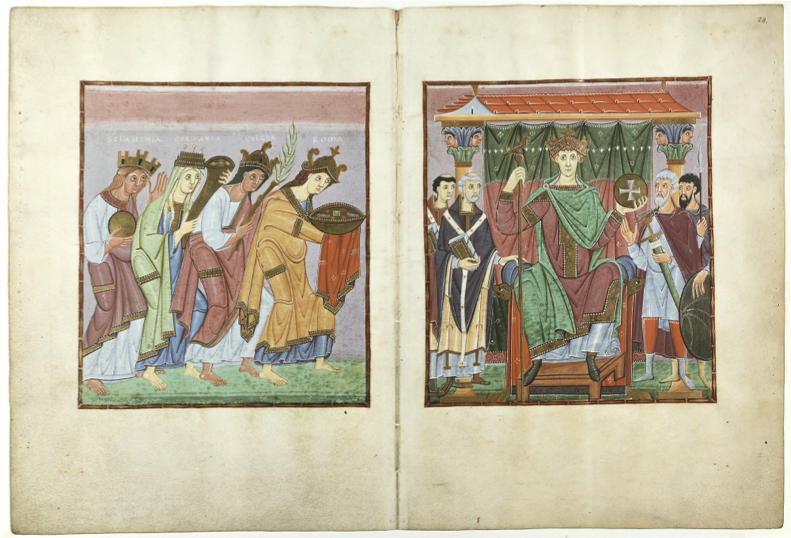 SCLAVINIA GERMANIA GALLIA ROMA
24.